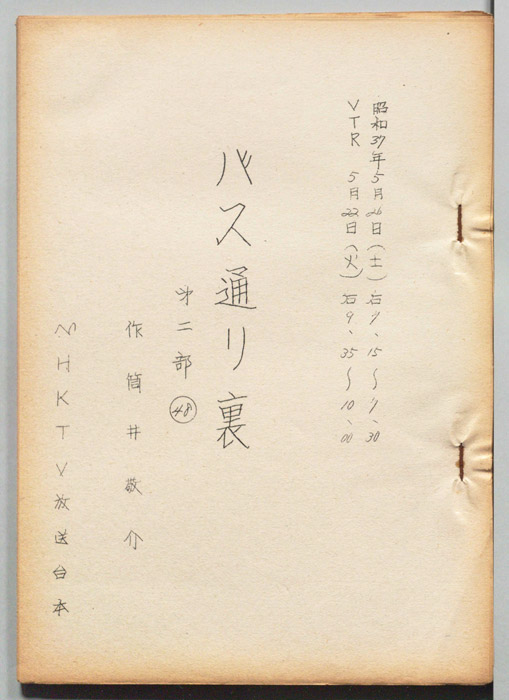 昭和37年5月26日(土)后7、15〜7、30
VTR 5月22日(火)后9、35〜10、00
バス通り裏
才二部 48
作 筒井敬介
NHKTV放送台本